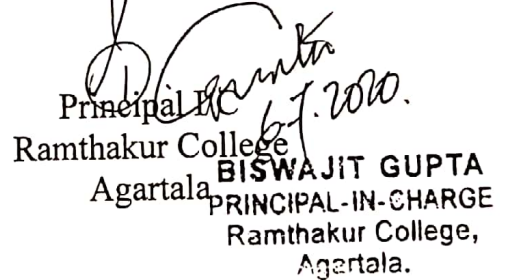 6.7.2020.
Principal I/C
Ramthakur College
Agartala
BISWAJIT GUPTA
PRINCIPAL-IN-CHARGE
Ramthakur College,
Agartala.